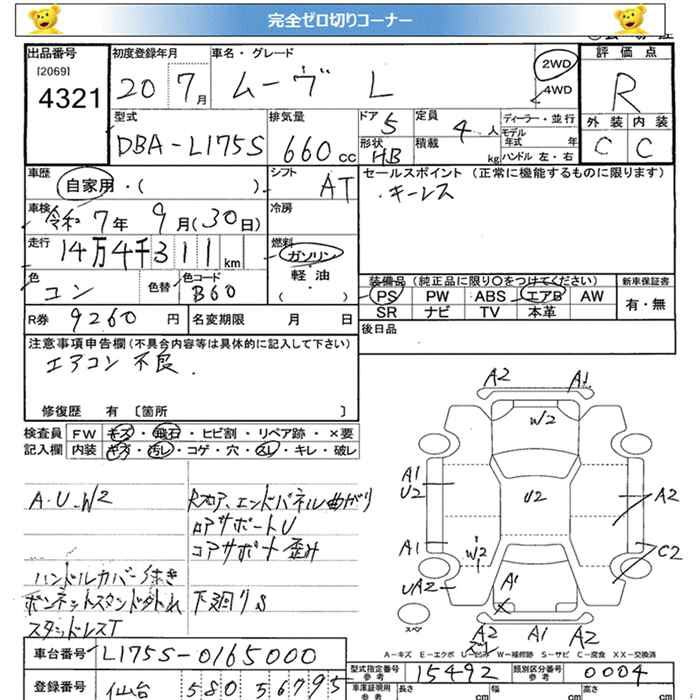 完全ゼロ切りコーナー
出品番号
[2069]
4321
初度登録年月
20 7月
車名・グレード
ムーヴ L
2WD
4WD
評価点
R
外装 内装
C C
型式
DBA-L175S
排気量
660cc
ドア 5
形状 HB
定員
4人
積載
kg
ディーラー・並行
モデル年式 年
ハンドル 左・右
車歴
自家用・( )
シフト
AT
車検
令和7年9月(30日)
冷房
走行
14万4千311km
燃料
ガソリン
軽・油
( )
色
コン
色替
色コード
B60
R券 9260円
名変期限 月 日
セールスポイント(正常に機能するものに限ります)
・キーレス
装備品(純正品に限り○をつけてください)
PS PW ABS エアB AW
SR ナビ TV 本革
新車保証書
有・無
後日品
注意事項申告欄(不具合内容等は具体的に記入して下さい)
エアコン不良.
修復歴 有 [箇所 ]
検査員
記入欄
FW キズ・飛石・ヒビ割・リペア跡・×要
内装 キズ・汚レ・コゲ・穴・スレ・キレ・破レ
A.U.W2
ハンドルカバー付き
ボンネットスタンド外れ
スタッドレスT
Rフロア、エンドパネル曲がり
ロアサポートU
コアサポート歪み
下廻りS
A2 A1
W2
A1
U2
U2
A2
A1
W2
C2
UA2
A1
X
スペア
A2 A1 A2
A-キズ E-エクボ U-凹み W-補修跡 S-サビ C-腐食 XX-交換済
車台番号 L175S-0165000
型式指定番号
参考
15492
類別区分番号
参考
0004
登録番号 仙台 580 す 6795
車庫証明用
参考
長さ cm
幅 cm
高さ cm